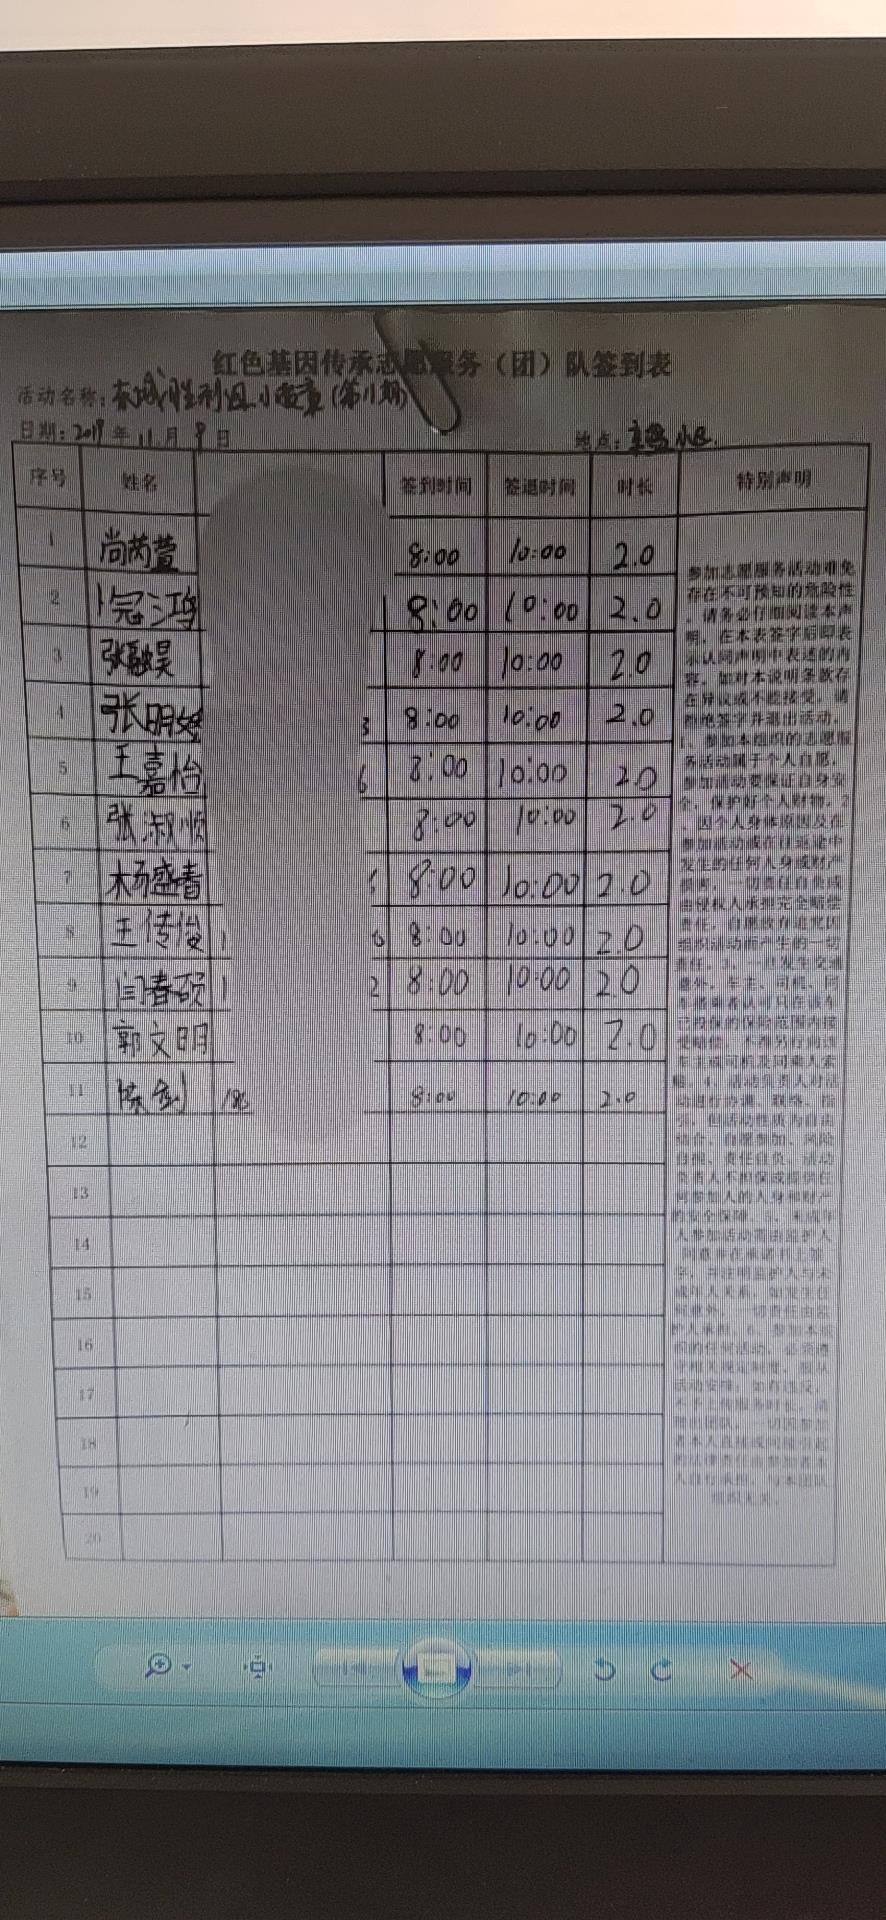 红色基因传承志愿服务（团）队签到表
活动名称：东城胜利(第11期)
日期：2019年11月9日 地点：小区
序号 姓名 签到时间 签退时间 时长 特别声明
1 尚芮萱 8:00 10:00 2.0
2 冠鸿 8:00 10:00 2.0
3 张融昊 8:00 10:00 2.0
4 张明 3 8:00 10:00 2.0
5 王嘉怡 6 8:00 10:00 2.0
6 张淑顺 8:00 10:00 2.0
7 杨盛春 8:00 10:00 2.0
8 王传俊 1 8:00 10:00 2.0
9 闫春硕 1 2 8:00 10:00 2.0
10 郭文明 8:00 10:00 2.0
11 陈剑 186 8:00 10:00 2.0
12
13
14
15
16
17
18
19
20
参加志愿服务活动难免
存在不可预知的危险性
，请务必仔细阅读本声
明，在本表签字后即表
示认同声明中表述的内
容，如对本说明条款存
在异议或不能接受，请
拒绝签字并退出活动。
1、参加本组织的志愿服
务活动属于个人自愿，
参加活动要保证自身安
全，保护好个人财物。2
、因个人身体原因及在
参加活动或在往返途中
发生的任何人身或财产
损害，一切责任自负或
由侵权人承担完全赔偿
责任，自愿放弃追究因
组织活动而产生的一切
责任。3、一旦发生交通
意外，车主、司机、同
车搭乘者认可只在该车
已投保的保险范围内接
受赔偿，不再另行向该
车主或司机及同乘人索
赔。4、活动负责人对活
动进行协调、联络、指
引，但活动性质为自由
结合、自愿参加、风险
自担、责任自负，活动
负责人不担保或提供任
何参加人的人身和财产
的安全保障。5、未成年
人参加活动需由监护人
同意并在承诺书上签
字，并注明监护人与未
成年人关系，如发生任
何意外，一切责任由监
护人承担。6、参加本组
织的任何活动，必须遵
守相关规定制度，服从
活动安排；如有违反，
不予上传服务时长，请
退出团队，一切因参加
者本人直接或间接引起
的法律责任由参加者本
人自行承担，与本团队
组织无关。